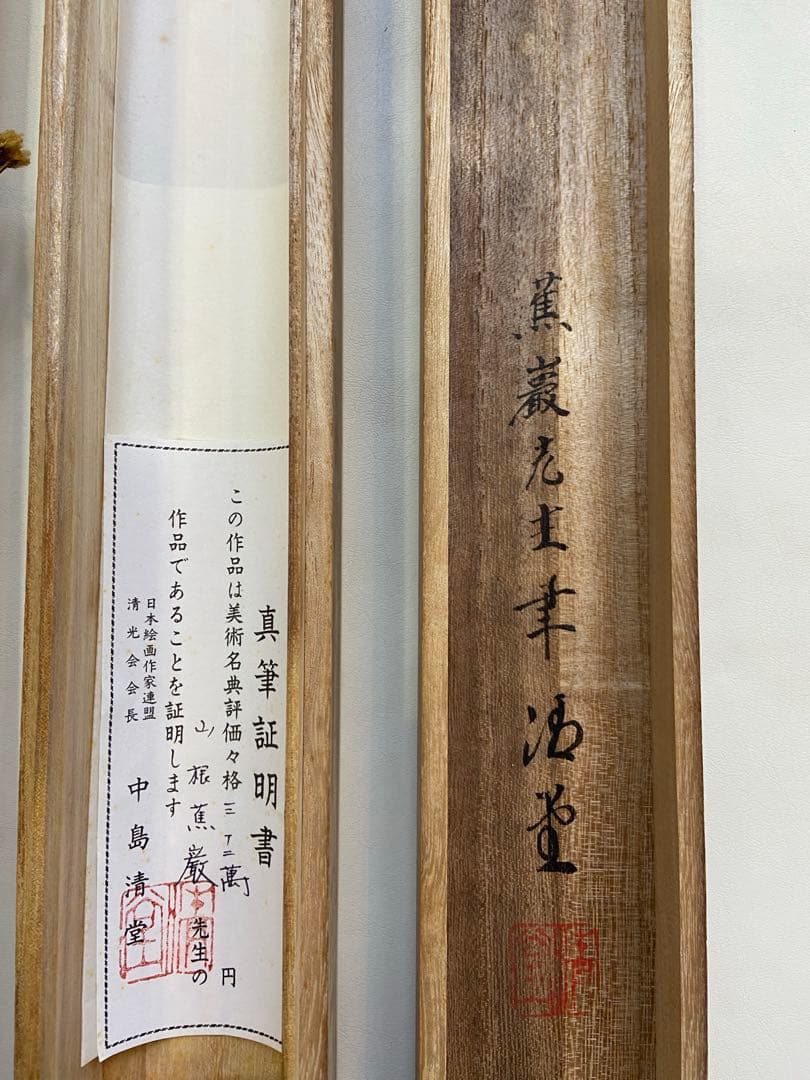 蕉巌先生筆 清堂
真筆証明書
この作品は美術名典評価々格三二萬円
山根蕉巌先生の
作品であることを証明します
日本絵画作家連盟
清光会会長
中島清堂